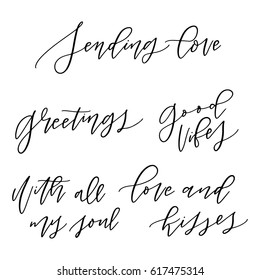 Sending love
greetings
good
vibes
With all
my soul
love and
kisses
shutterstock.com · 617475314